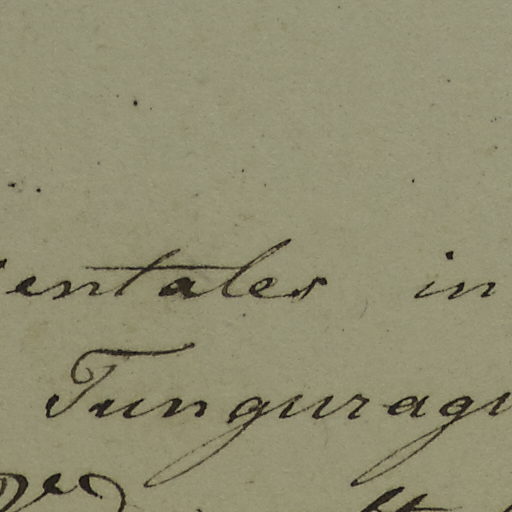 entales in
Tunguragu